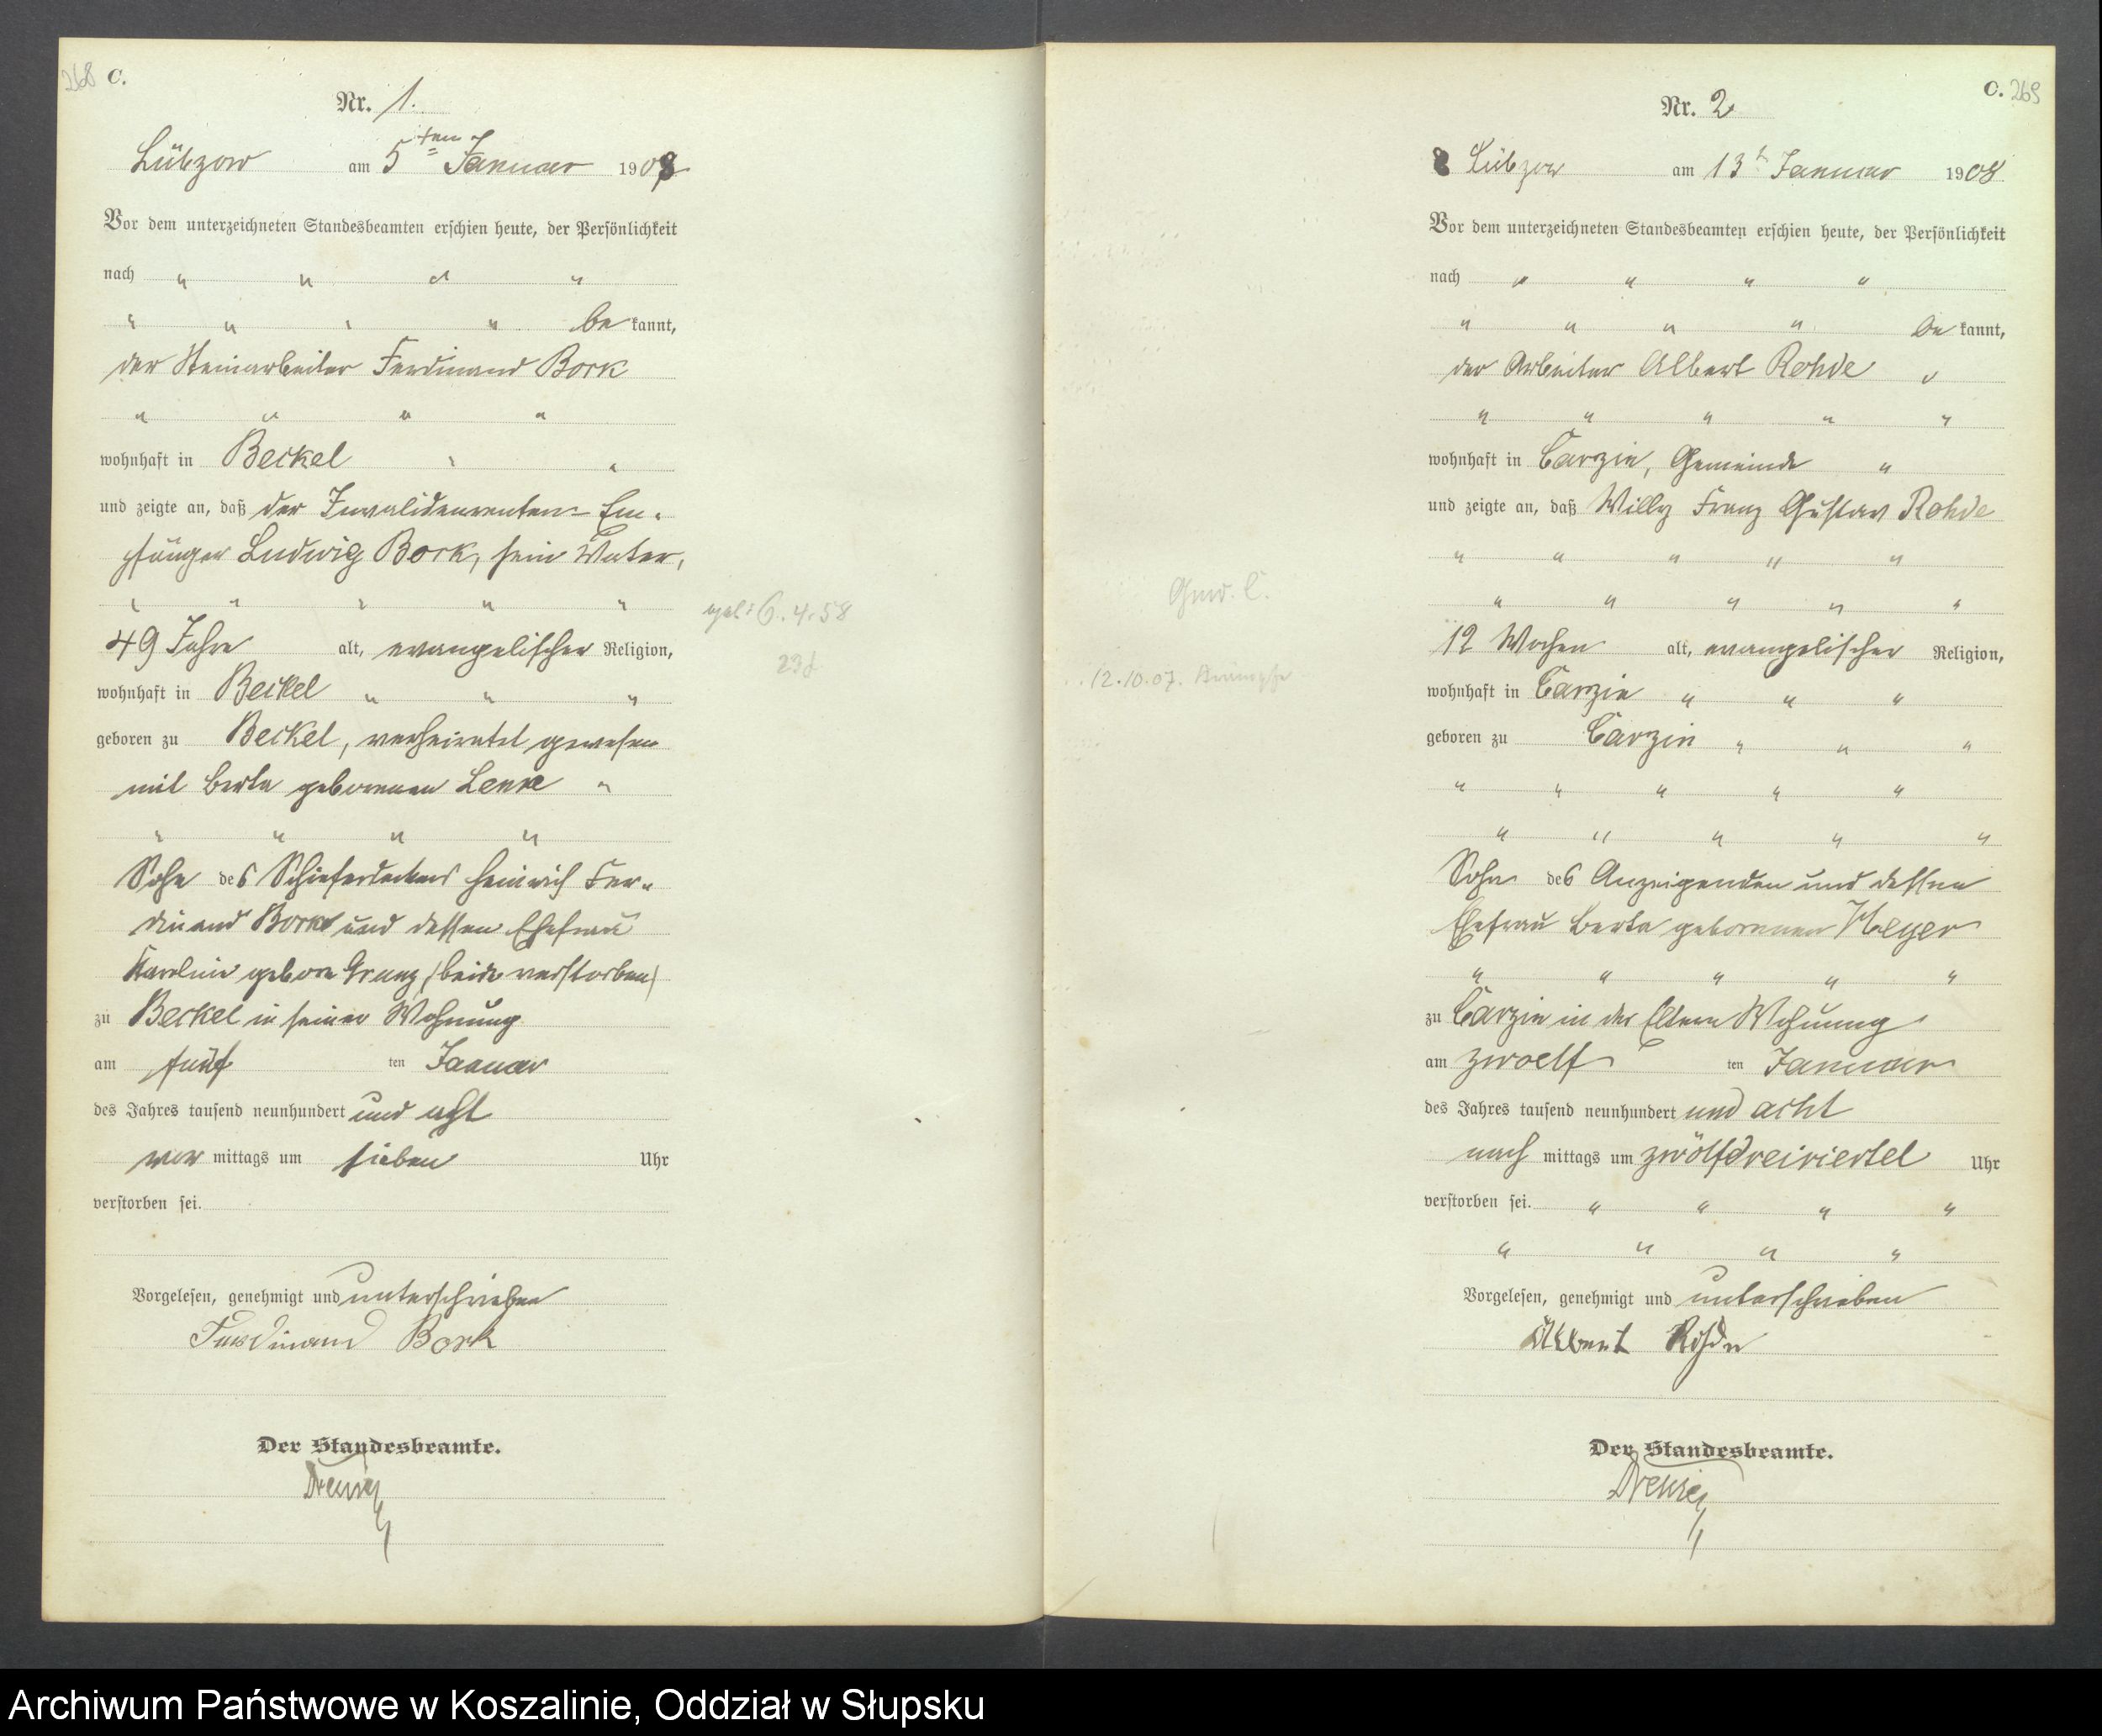 268 C.
Nr. 1.
Lübzow am 5ten Januar 1908
Vor dem unterzeichneten Standesbeamten erschien heute, der Persönlichkeit
nach " " " "
" " " " be kannt,
der Steinarbeiter Ferdinand Bork
" " " "
wohnhaft in Beckel " "
und zeigte an, daß der Invalidenrenten-Em-
pfänger Ludwig Bork, sein Vater,
" " " " "
49 Jahre alt, evangelischer Religion,
wohnhaft in Beckel " " "
geboren zu Beckel, verheiratet gewesen
mit Berta geborenen "
" " " "
Sohn des Schieferdeckers Heinrich Fer-
dinand Bork und dessen Ehefrau
Karoline geborene Granz (beide verstorben)
zu Beckel in seiner Wohnung
am fünf ten Januar
des Jahres tausend neunhundert und acht
vor mittags um sieben Uhr
verstorben sei.
Vorgelesen, genehmigt und unterschrieben
Ferdinand Bork
Der Standesbeamte.
6.4.58
C. 269
Nr. 2
Lübzow am 13t Januar 1908
Vor dem unterzeichneten Standesbeamten erschien heute, der Persönlichkeit
nach " " " "
" " " " be kannt,
der Arbeiter Albert Rohde "
" " " " "
wohnhaft in Carzin, Gemeinde "
und zeigte an, daß Willy Franz Gustav Rohde
" " " " "
" " " " "
12 Wochen alt, evangelischer Religion,
wohnhaft in Carzin " " "
geboren zu Carzin " " "
" " " " "
" " " " "
Sohn des Anzeigenden und dessen
Ehefrau Berta geborenen Heyer
" " " " "
zu Carzin in der Eltern Wohnung
am zwoelf ten Januar
des Jahres tausend neunhundert und acht
nach mittags um zwölfdreiviertel Uhr
verstorben sei. " " " "
" " " "
Vorgelesen, genehmigt und unterschrieben
Albert Rohde
Der Standesbeamte.
Gmd. C.
12.10.07.
Archiwum Państwowe w Koszalinie, Oddział w Słupsku